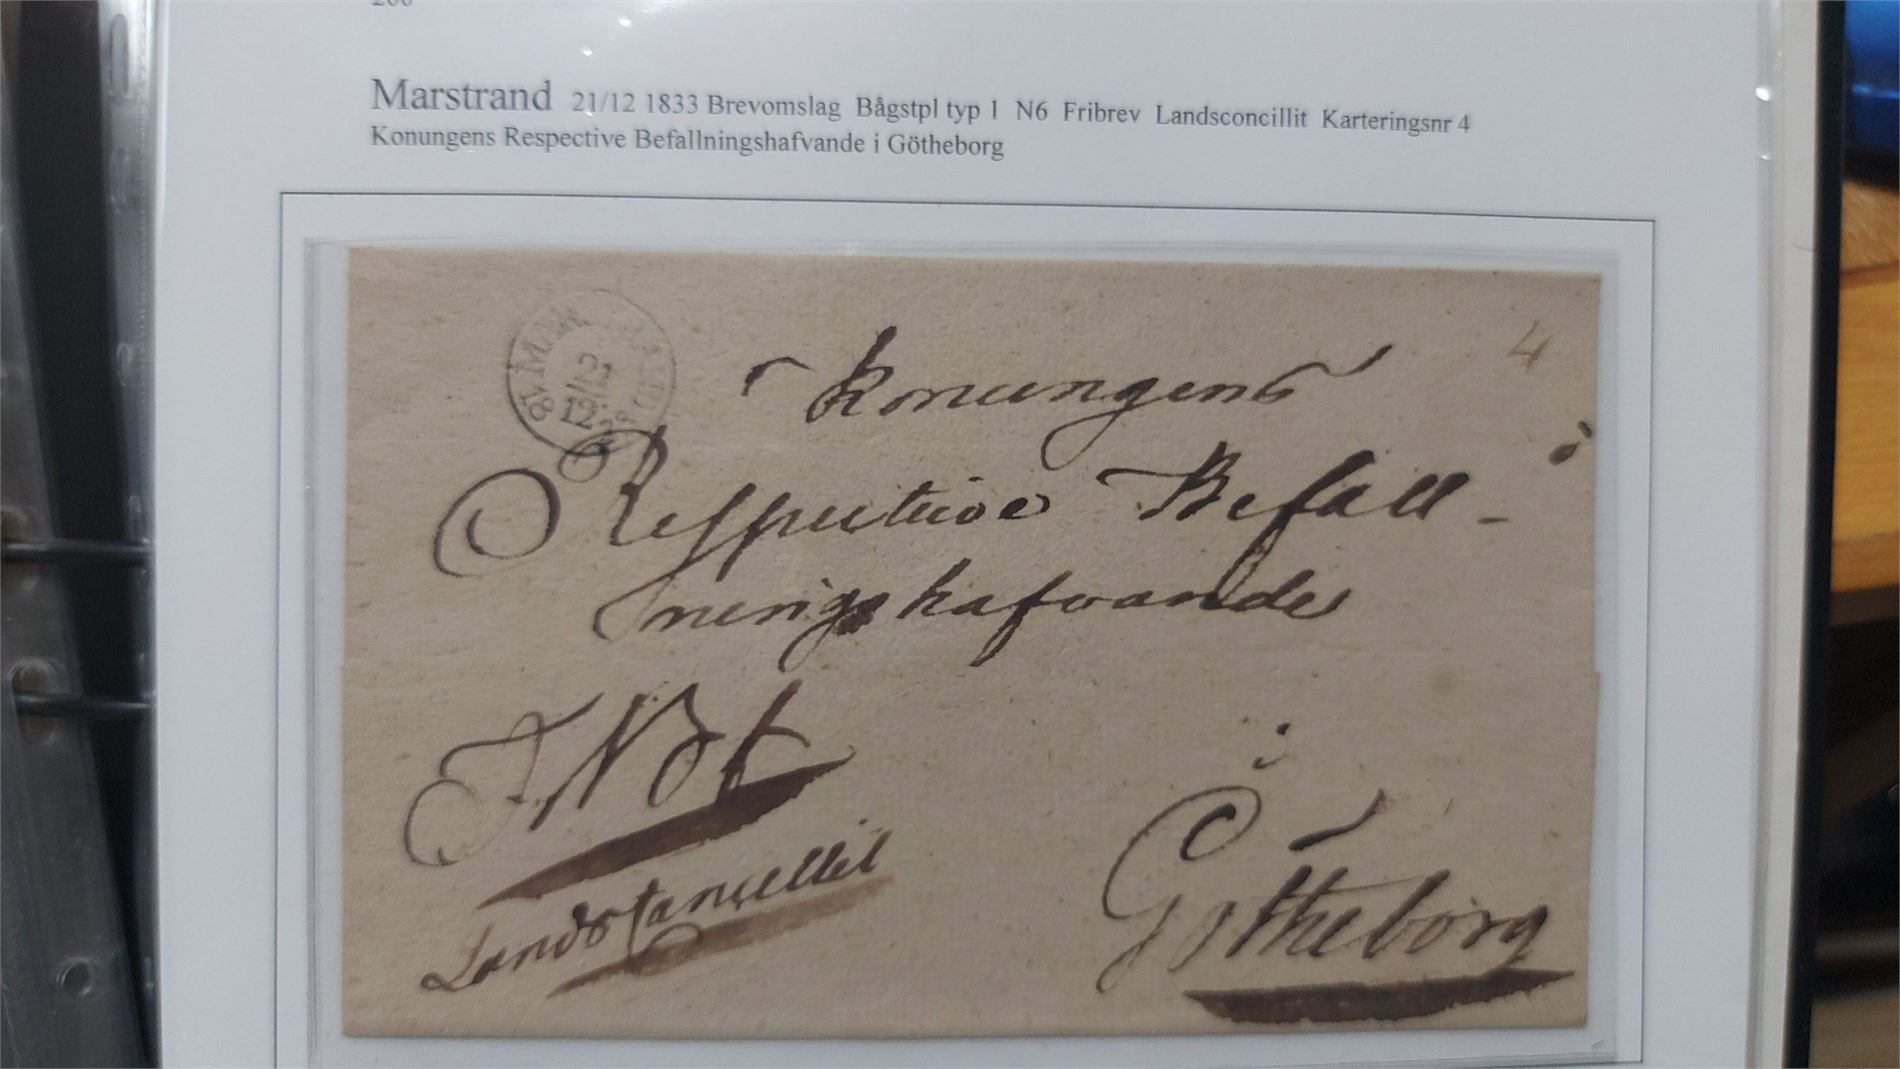 Marstrand 21/12 1833 Brevomslag Bågstpl typ 1 N6 Fribrev Landsconcillit Karteringsnr 4
Konungens Respective Befallningshafvande i Götheborg
4
Konungens
Respective Befall-
ningshafvande
i
Götheborg
Landscancellit